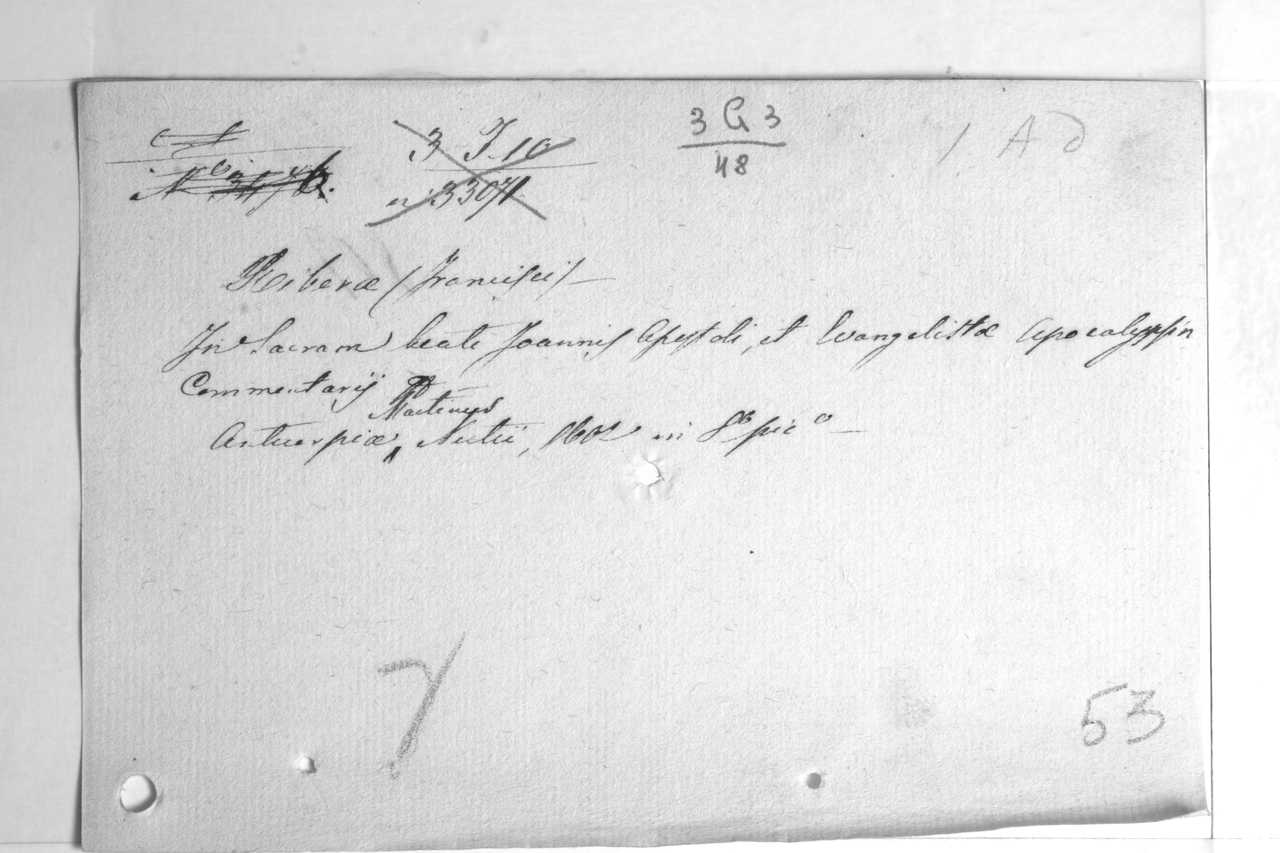 3 J 10
n° 3304
3 G 3
48
1 A d
Riberæ (Francisci)
In Sacram beati Joannis Apostoli, et Evangelistæ Apocalypsin
Commentarij
Antuerpiæ, Martinus Nutii, 1602 in 8º pic°
53